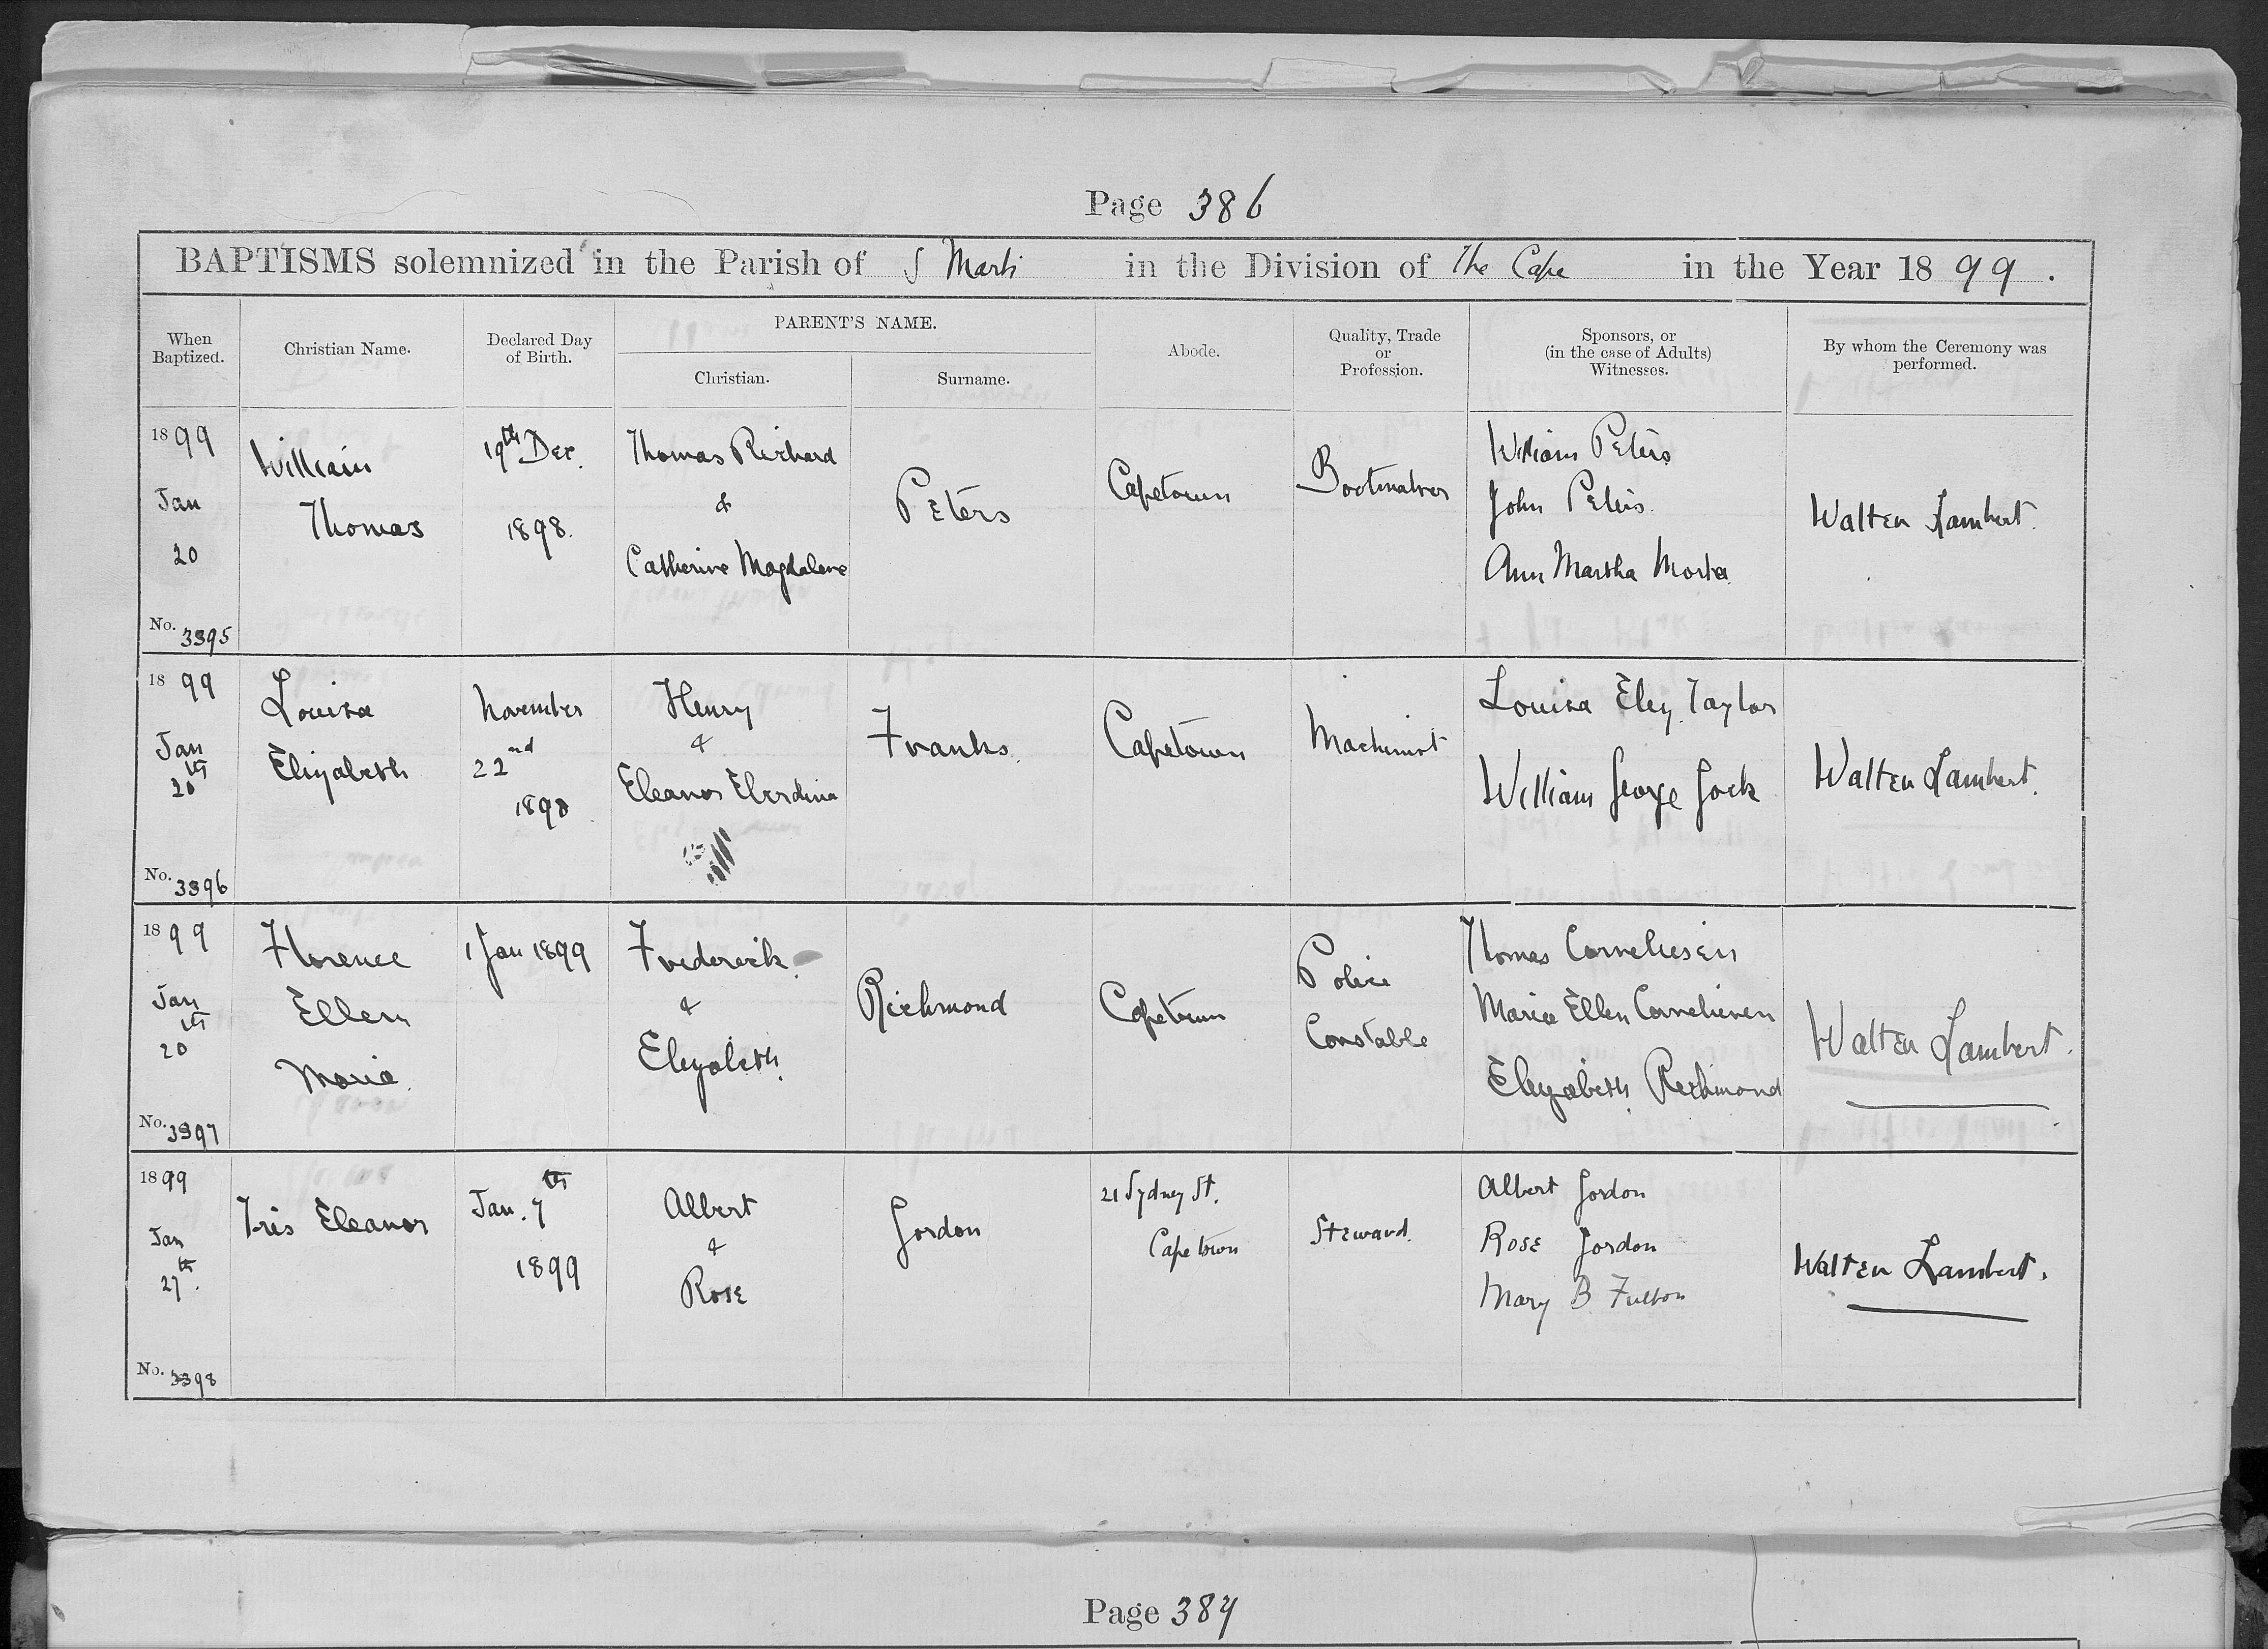 Page 386
BAPTISMS solemnized in the Parish of S Mark's in the Division of The Cape in the Year 1899.
When Baptized.
Christian Name.
Declared Day of Birth.
PARENT'S NAME.
Christian.
Surname.
Abode.
Quality, Trade or Profession.
Sponsors, or (in the case of Adults) Witnesses.
By whom the Ceremony was performed.
1899
Jan
20
No. 3395
William
Thomas
19th Dec.
1898.
Thomas Richard
&
Catherine Magdalene
Peters
Capetown
Bootmaker
William Peters
John Peters.
Ann Martha
Walter Lambert.
1899
Jan
20th
No. 3396
Louisa
Elizabeth
November
22nd
1898
Henry
&
Eleanor
Franks.
Capetown
Machinist
Louisa Eley Taylor
William George
Walter Lambert.
1899
Jan
20th
No. 3397
Florence
Ellen
Maria.
1 Jan 1899
Frederick.
&
Elizabeth.
Richmond
Capetown
Police
Constable
Thomas Corneliesen
Maria Ellen Corneliesen
Elizabeth Richmond
Walter Lambert.
1899
Jan
27th.
No. 3398
Iris Eleanor
Jan. 7th
1899
Albert
&
Rose
Gordon
21 Sydney St.
Capetown
Steward.
Albert Gordon
Rose Gordon
Mary B Fulton
Walter Lambert.
Page 387